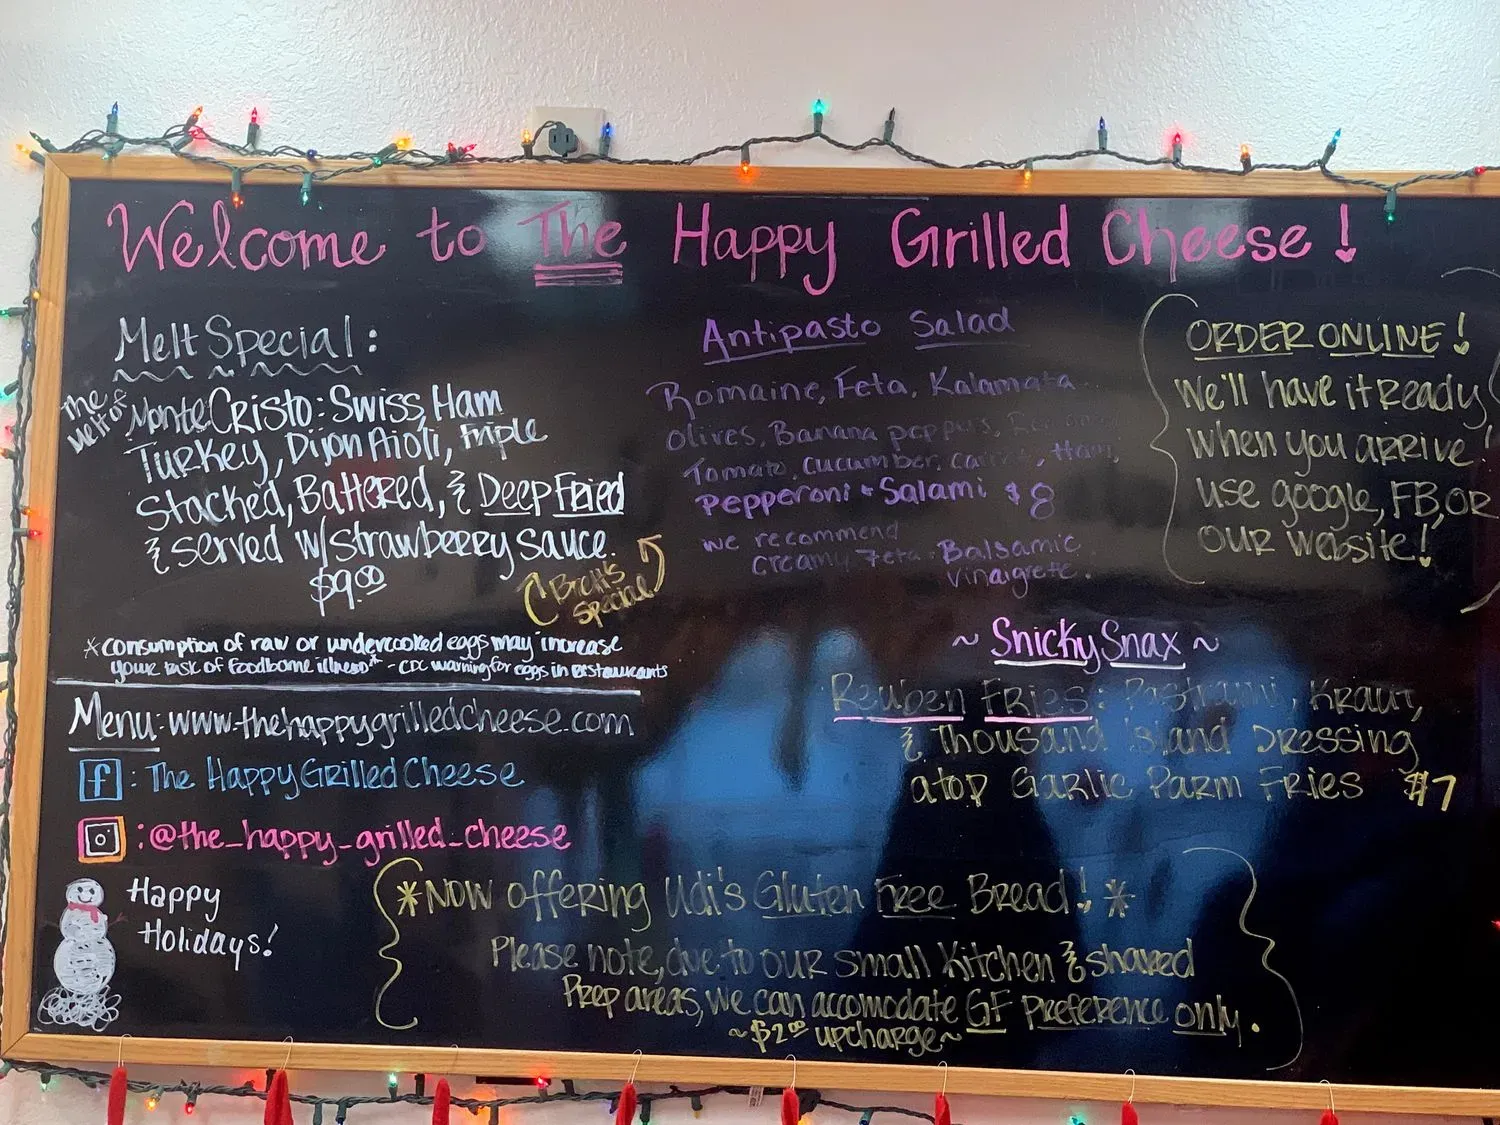 Welcome to The Happy Grilled Cheese!
Melt Special:
The Melt of Monte Cristo: Swiss, Ham
Turkey, Dijon Aioli, Triple
Stacked, Battered, & Deep Fried
& Served w/ strawberry sauce.
$9.00
Brett's
Special
*consumption of raw or undercooked eggs may increase
your risk of foodborne illness* - CDC warning for eggs in restaurants
Menu: www.thehappygrilledcheese.com
f : The Happy Grilled Cheese
: @the_happy_grilled_cheese
Happy
Holidays!
Antipasto Salad
Romaine, Feta, Kalamata
Olives, Banana peppers,
Tomato, cucumber, carrot, Ham,
Pepperoni + Salami $8
we recommend
creamy Feta Balsamic
vinaigrete.
ORDER ONLINE!
We'll have it Ready
when you arrive!
use google, FB, OR
our website!
~ Snicky Snax ~
Reuben Fries: Pastrami, Kraut,
& Thousand island Dressing
atop Garlic Parm Fries $7
*Now offering Udi's Gluten Free Bread! *
Please note, due to our small kitchen & shared
Prep areas, we can accomodate GF preference only.
~$2.00 upcharge~